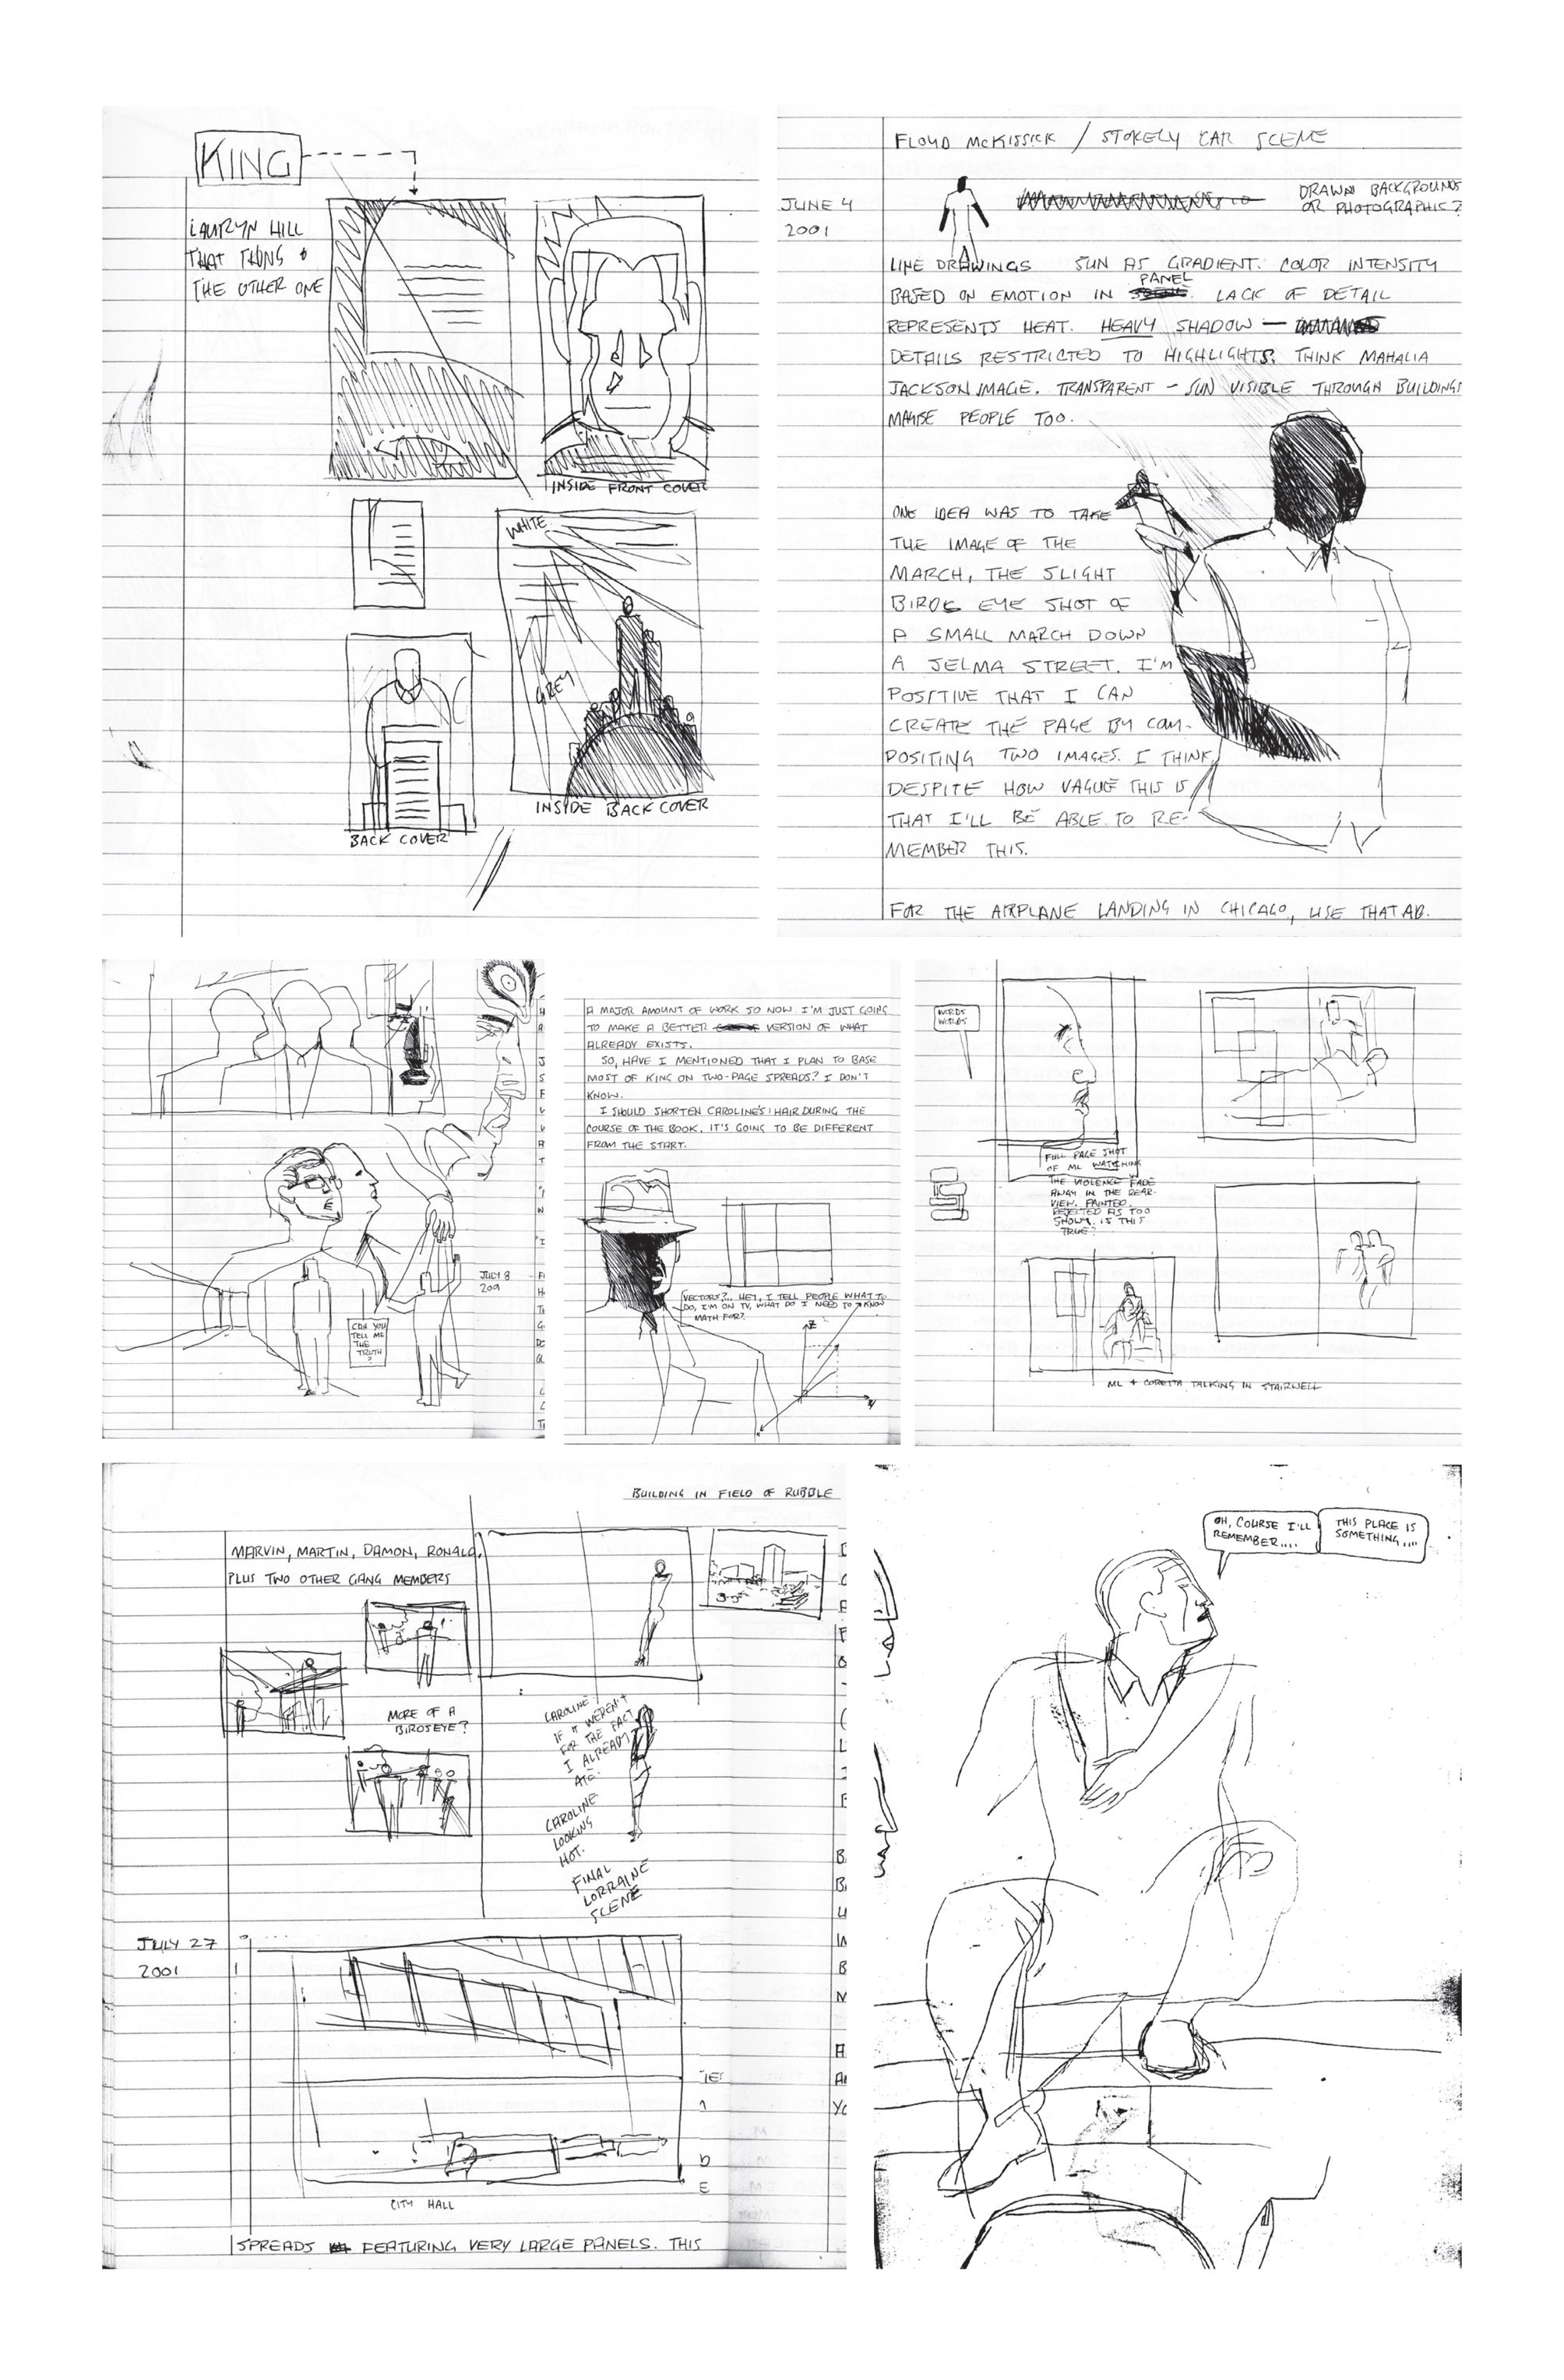 KING
LAURYN HILL
THAT THING &
THE OTHER ONE
INSIDE FRONT COVER
WHITE
GREY
INSIDE BACK COVER
BACK COVER
FLOYD McKISSICK / STOKELY CAR SCENE
JUNE 4
2001
DRAWN BACKGROUNDS
OR PHOTOGRAPHIC?
LINE DRAWINGS SUN AS GRADIENT. COLOR INTENSITY
BASED ON EMOTION IN PANEL. LACK OF DETAIL
REPRESENTS HEAT. HEAVY SHADOW —
DETAILS RESTRICTED TO HIGHLIGHTS. THINK MAHALIA
JACKSON IMAGE. TRANSPARENT - SUN VISIBLE THROUGH BUILDINGS
MAYBE PEOPLE TOO.
ONE IDEA WAS TO TAKE
THE IMAGE OF THE
MARCH, THE SLIGHT
BIRDS EYE SHOT OF
A SMALL MARCH DOWN
A SELMA STREET. I'M
POSITIVE THAT I CAN
CREATE THE PAGE BY COM-
POSITING TWO IMAGES. I THINK,
DESPITE HOW VAGUE THIS IS
THAT I'LL BE ABLE TO RE-
MEMBER THIS.
FOR THE AIRPLANE LANDING IN CHICAGO, USE THAT AD.
JULY 8
CAN YOU
TELL ME
THE
TRUTH
?
A MAJOR AMOUNT OF WORK SO NOW I'M JUST GOING
TO MAKE A BETTER VERSION OF WHAT
ALREADY EXISTS.
SO, HAVE I MENTIONED THAT I PLAN TO BASE
MOST OF KING ON TWO-PAGE SPREADS? I DON'T
KNOW.
I SHOULD SHORTEN CAROLINE'S HAIR DURING THE
COURSE OF THE BOOK. IT'S GOING TO BE DIFFERENT
FROM THE START.
VECTORS?... HEY, I TELL PEOPLE WHAT TO
DO, I'M ON TV, WHAT DO I NEED TO KNOW
MATH FOR?
Z
WORDS
WORDS
FULL PAGE SHOT
OF ML WATCHING
THE VIOLENCE FADE
AWAY IN THE REAR-
VIEW. PAINTED.
REJECTED AS TOO
SHOWY. IS THIS
TRUE?
ML + CORETTA TALKING IN STAIRWELL
BUILDING IN FIELD OF RUBBLE
MARVIN, MARTIN, DAMON, RONALD,
PLUS TWO OTHER GANG MEMBERS
MORE OF A
BIRDSEYE?
CAROLINE
IF IT WEREN'T
FOR THE FACT
I ALREADY
ATE.
CAROLINE
LOOKING
HOT.
FINAL
LORRAINE
SCENE
JULY 27
2001
CITY HALL
SPREADS FEATURING VERY LARGE PANELS. THIS
OH, COURSE I'LL
REMEMBER....
THIS PLACE IS
SOMETHING....